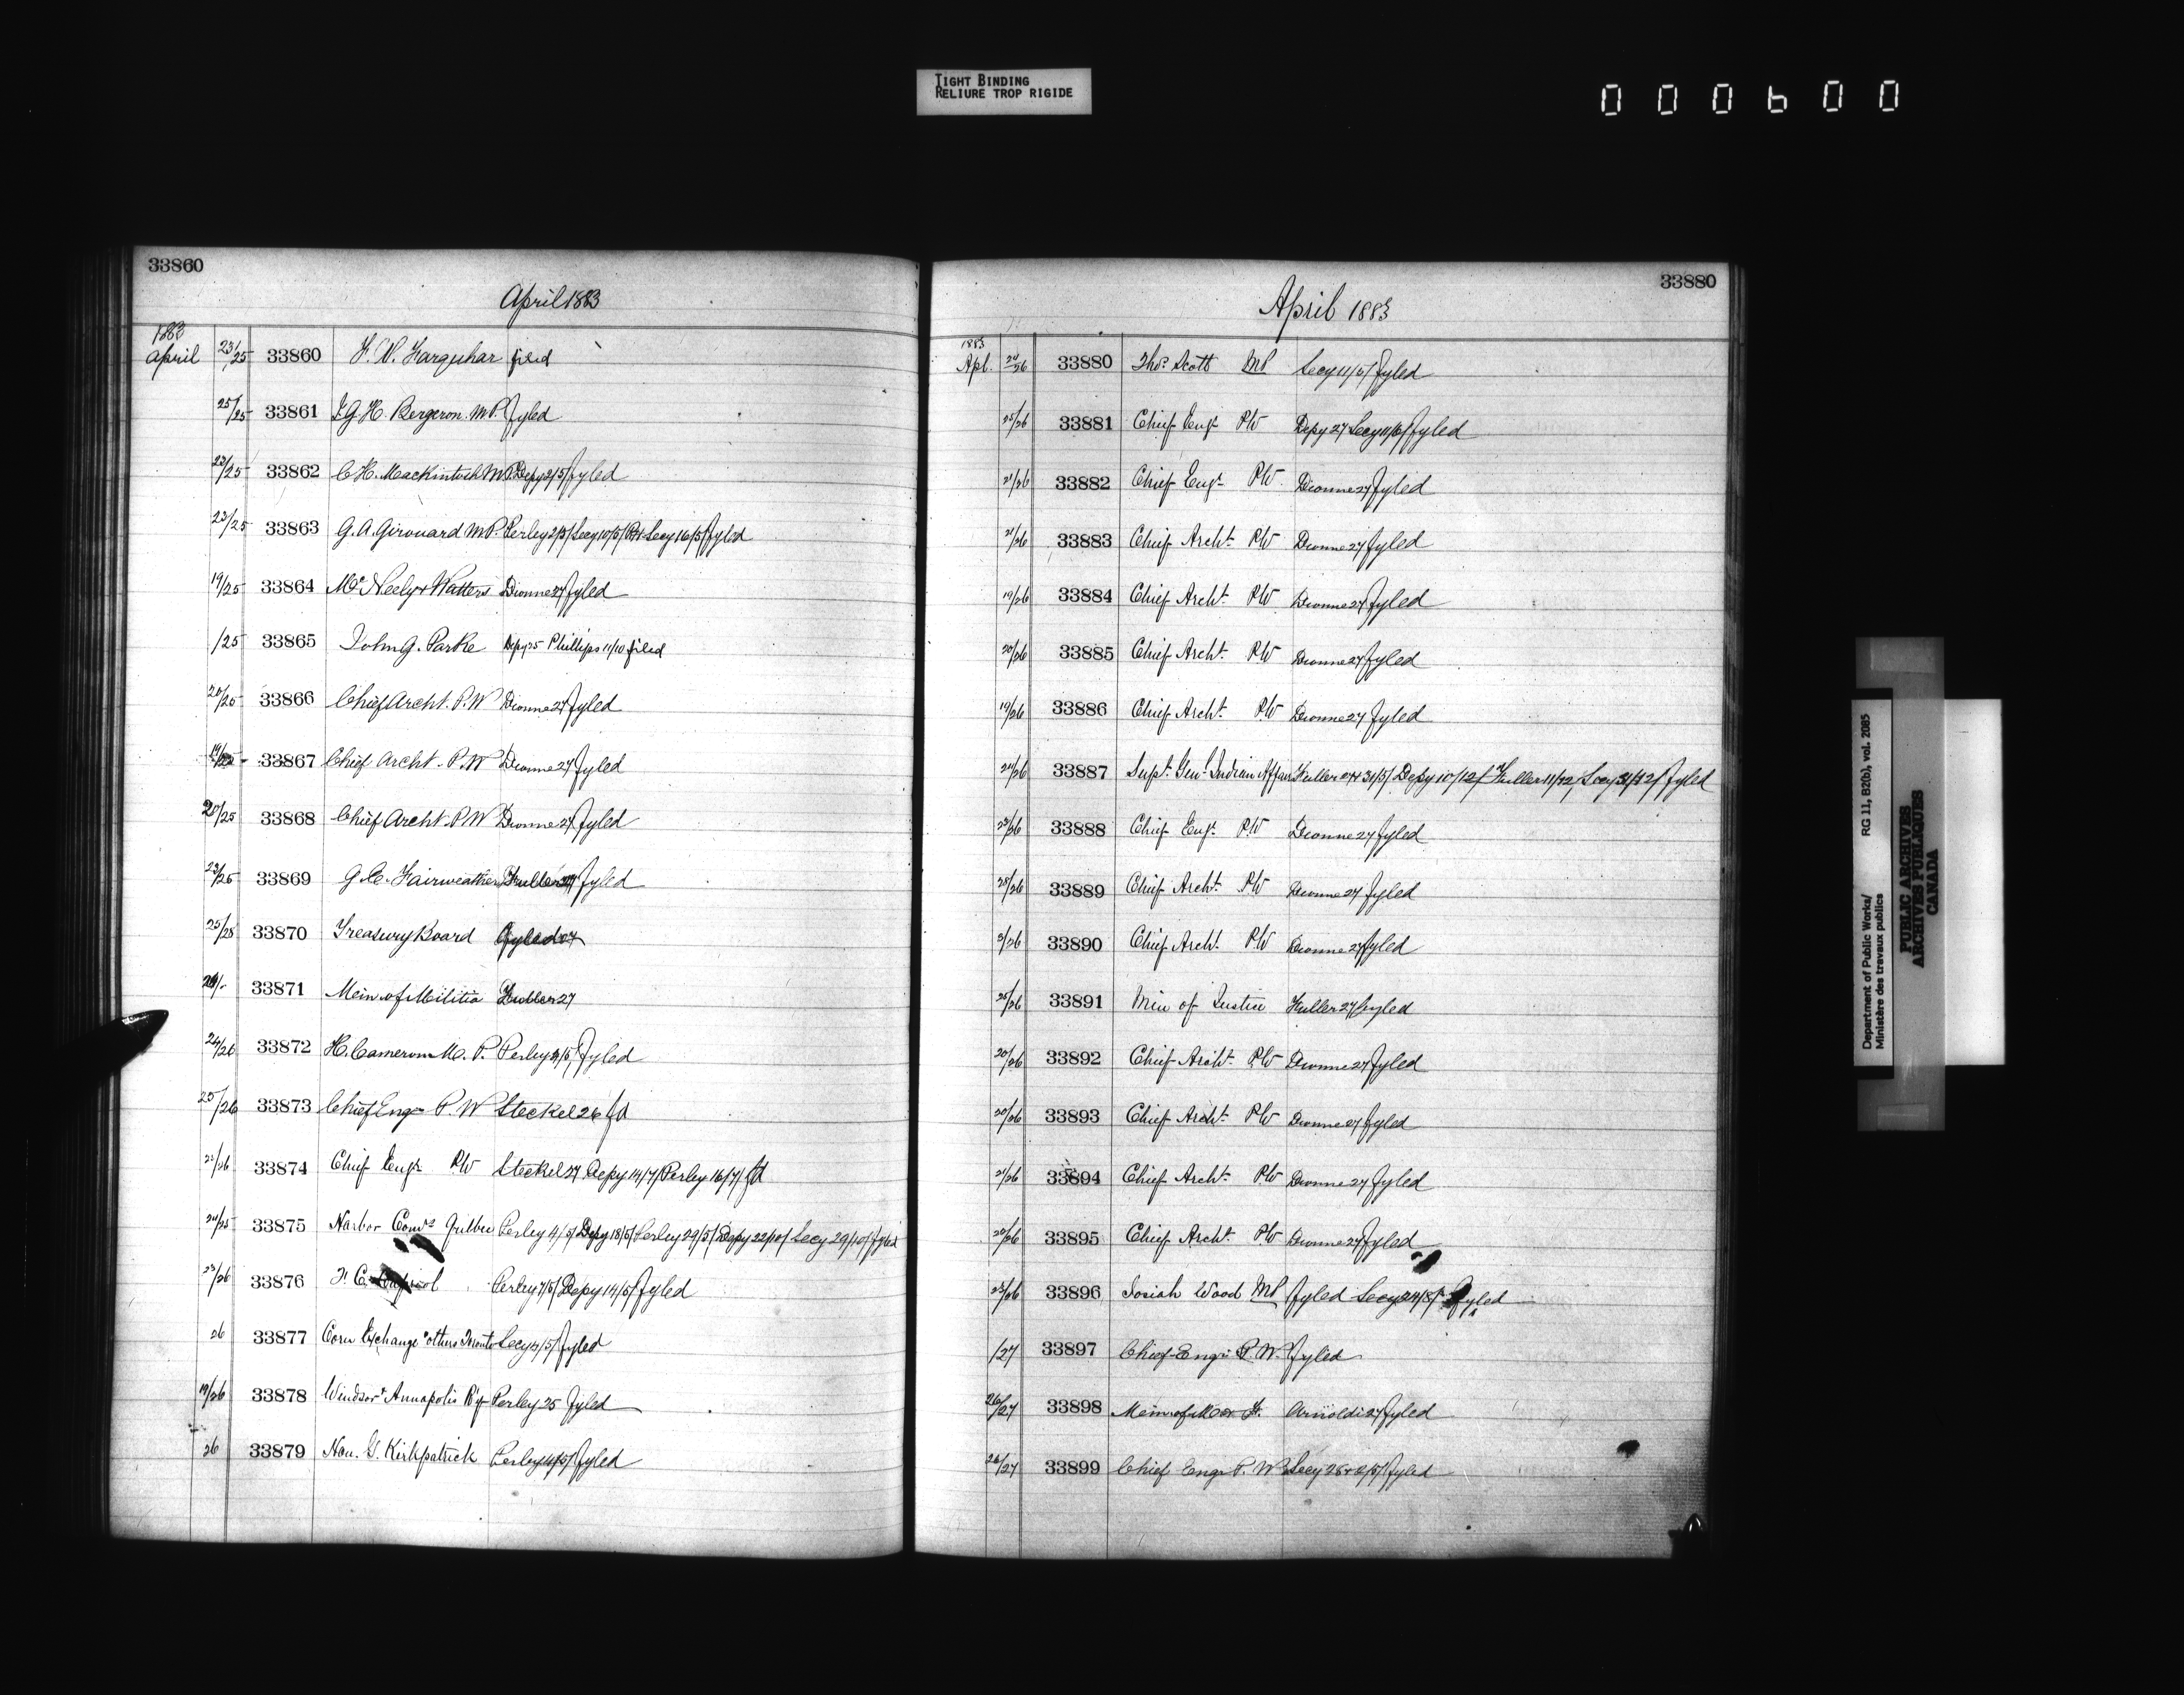 TIGHT BINDING
RELIURE TROP RIGIDE
000600
33860
April 1883
1883
April 23/25 33860 F. W. Farquhar filed
25/25 33861 J G H Bergeron. M.P. Fyled
23/25 33862 C H. Mackintosh M.P. Depy 2/5/ Fyled
23/25 33863 G. A. Girouard M.P. Perley 2/5/ Secy 10/5/ Secy 16/5/ Fyled
19/25 33864 McNeely & Watters Dionne 27 Fyled
/25 33865 John G. Parke Depy 25 Phillips 11/10 filed
20/25 33866 Chief Archt. P.W Dionne 27 Fyled
33867 Chief Archt. P.W Dionne 27 Fyled
20/25 33868 Chief Archt. P.W Dionne 27 Fyled
23/25 33869 G. E. Fairweather Fuller Fyled
25/25 33870 Treasury Board Fyled
33871 Mein of Militia Fuller 27
24/26 33872 H. Cameron M. P. Perley 4/5/ Fyled
25/26 33873 Chief Engr P. W Steckel 26 fd
33874 Chief Engr PW Steckel 27 Depy 14/7/ Perley 16/7/ fd
33875 Harbor Comrs Quebec Perley 4/5/ Depy 18/5/ Perley 29/5/ Depy 22/10/ Secy 29/10/ Fyled
23/26 33876 F. C. Perley 7/5/ Depy 14/5/ Fyled
26 33877 Corn Exchange & others Toronto Secy 4/5/ Fyled
19/26 33878 Windsor & Annapolis R'y Perley 25 Fyled
26 33879 Hon. G. Kirkpatrick Perley 4/5/ Fyled
33880
April 1883
1883
Apl. 24/26 33880 Thos. Scott MP Secy 11/5/ Fyled
25/26 33881 Chief Engr PW Depy 27 Secy 11/5/ Fyled
21/26 33882 Chief Engr PW. Dionne 27 Fyled
21/26 33883 Chief Archt. PW Dionne 27 Fyled
19/26 33884 Chief Archt. PW Dionne 27 Fyled
20/26 33885 Chief Archt. PW Dionne 27 Fyled
19/26 33886 Chief Archt. PW Dionne 27 Fyled
24/26 33887 Supt. Genl. Indian Affairs Fuller 27 & 31/5/ Depy 10/12/ Fuller 11/12/ Secy 31/12/ Fyled
23/26 33888 Chief Engr. PW Dionne 27 Fyled
25/26 33889 Chief Archt. PW Dionne 27 Fyled
33890 Chief Archt. PW Dionne 27 Fyled
25/26 33891 Min of Justice Fuller 27 Fyled
20/26 33892 Chief Archt. PW Dionne 27 Fyled
20/26 33893 Chief Archt. PW Dionne 27 Fyled
21/26 33894 Chief Archt. PW Dionne 27 Fyled
20/26 33895 Chief Archt. PW Dionne 27 Fyled
23/26 33896 Josiah Wood MP Fyled Secy 24/8/ Fyled
/27 33897 Chief Engr P. W. Fyled
26/27 33898 Mein of Arnoldi 27 Fyled
26/27 33899 Chief Engr P. W Secy 28 & 2/5/ Fyled
Department of Public Works/ RG 11, B2(b), vol. 2085
Ministère des travaux publics
PUBLIC ARCHIVES
ARCHIVES PUBLIQUES
CANADA